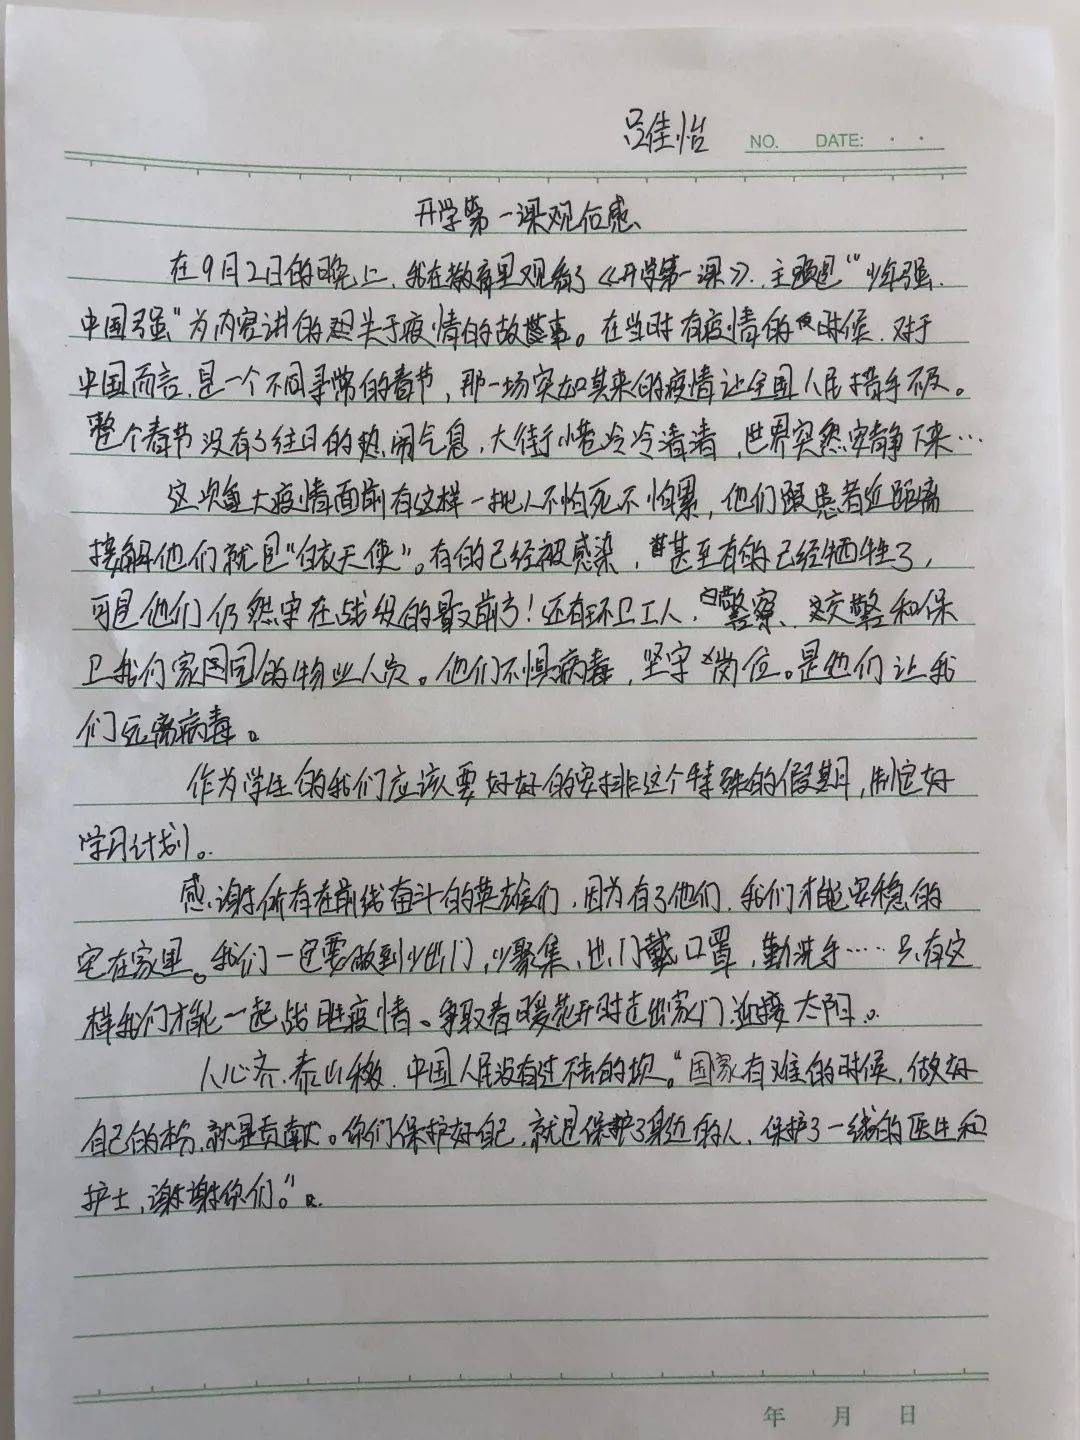 吕佳怡
NO. DATE: · ·
开学第一课观后感、
在9月2日的晚上、我在教育里观看了《开学第一课》、主题是“少年强、
中国强”为内容讲的是关于疫情的故事。在当时有疫情的时候、对于
中国而言、是一个不同寻常的春节，那一场突如其来的疫情让全国人民措手不及。
整个春节没有了往日的热闹气息，大街小巷冷冷清清，世界突然安静下来…
这次重大疫情面前有这样一批人不怕死不怕累，他们跟患者近距离
接触他们就是“白衣天使”。有的已经被感染，甚至有的已经牺牲了，
可是他们仍然守在战役的最前方！还有环卫工人、警察、交警和保
卫我们家园的物业人员。他们不惧病毒，坚守岗位。是他们让我
们远离病毒。
作为学生的我们应该要好好的安排这个特殊的假期，制定好
学习计划。
感谢所有在前线奋斗的英雄们，因为有了他们、我们才能安稳的
宅在家里。我们一定要做到少出门，少聚集，出门戴口罩，勤洗手……只有这
样我们才能一起战胜疫情。争取春暖花开时走出家门、迎接太阳。
人心齐、泰山移、中国人民没有过不去的坝。“国家有难的时候，做好
自己的本份、就是贡献。你们保护好自己、就是保护了身边的人、保护了一线的医生和
护士，谢谢你们。”
年 月 日